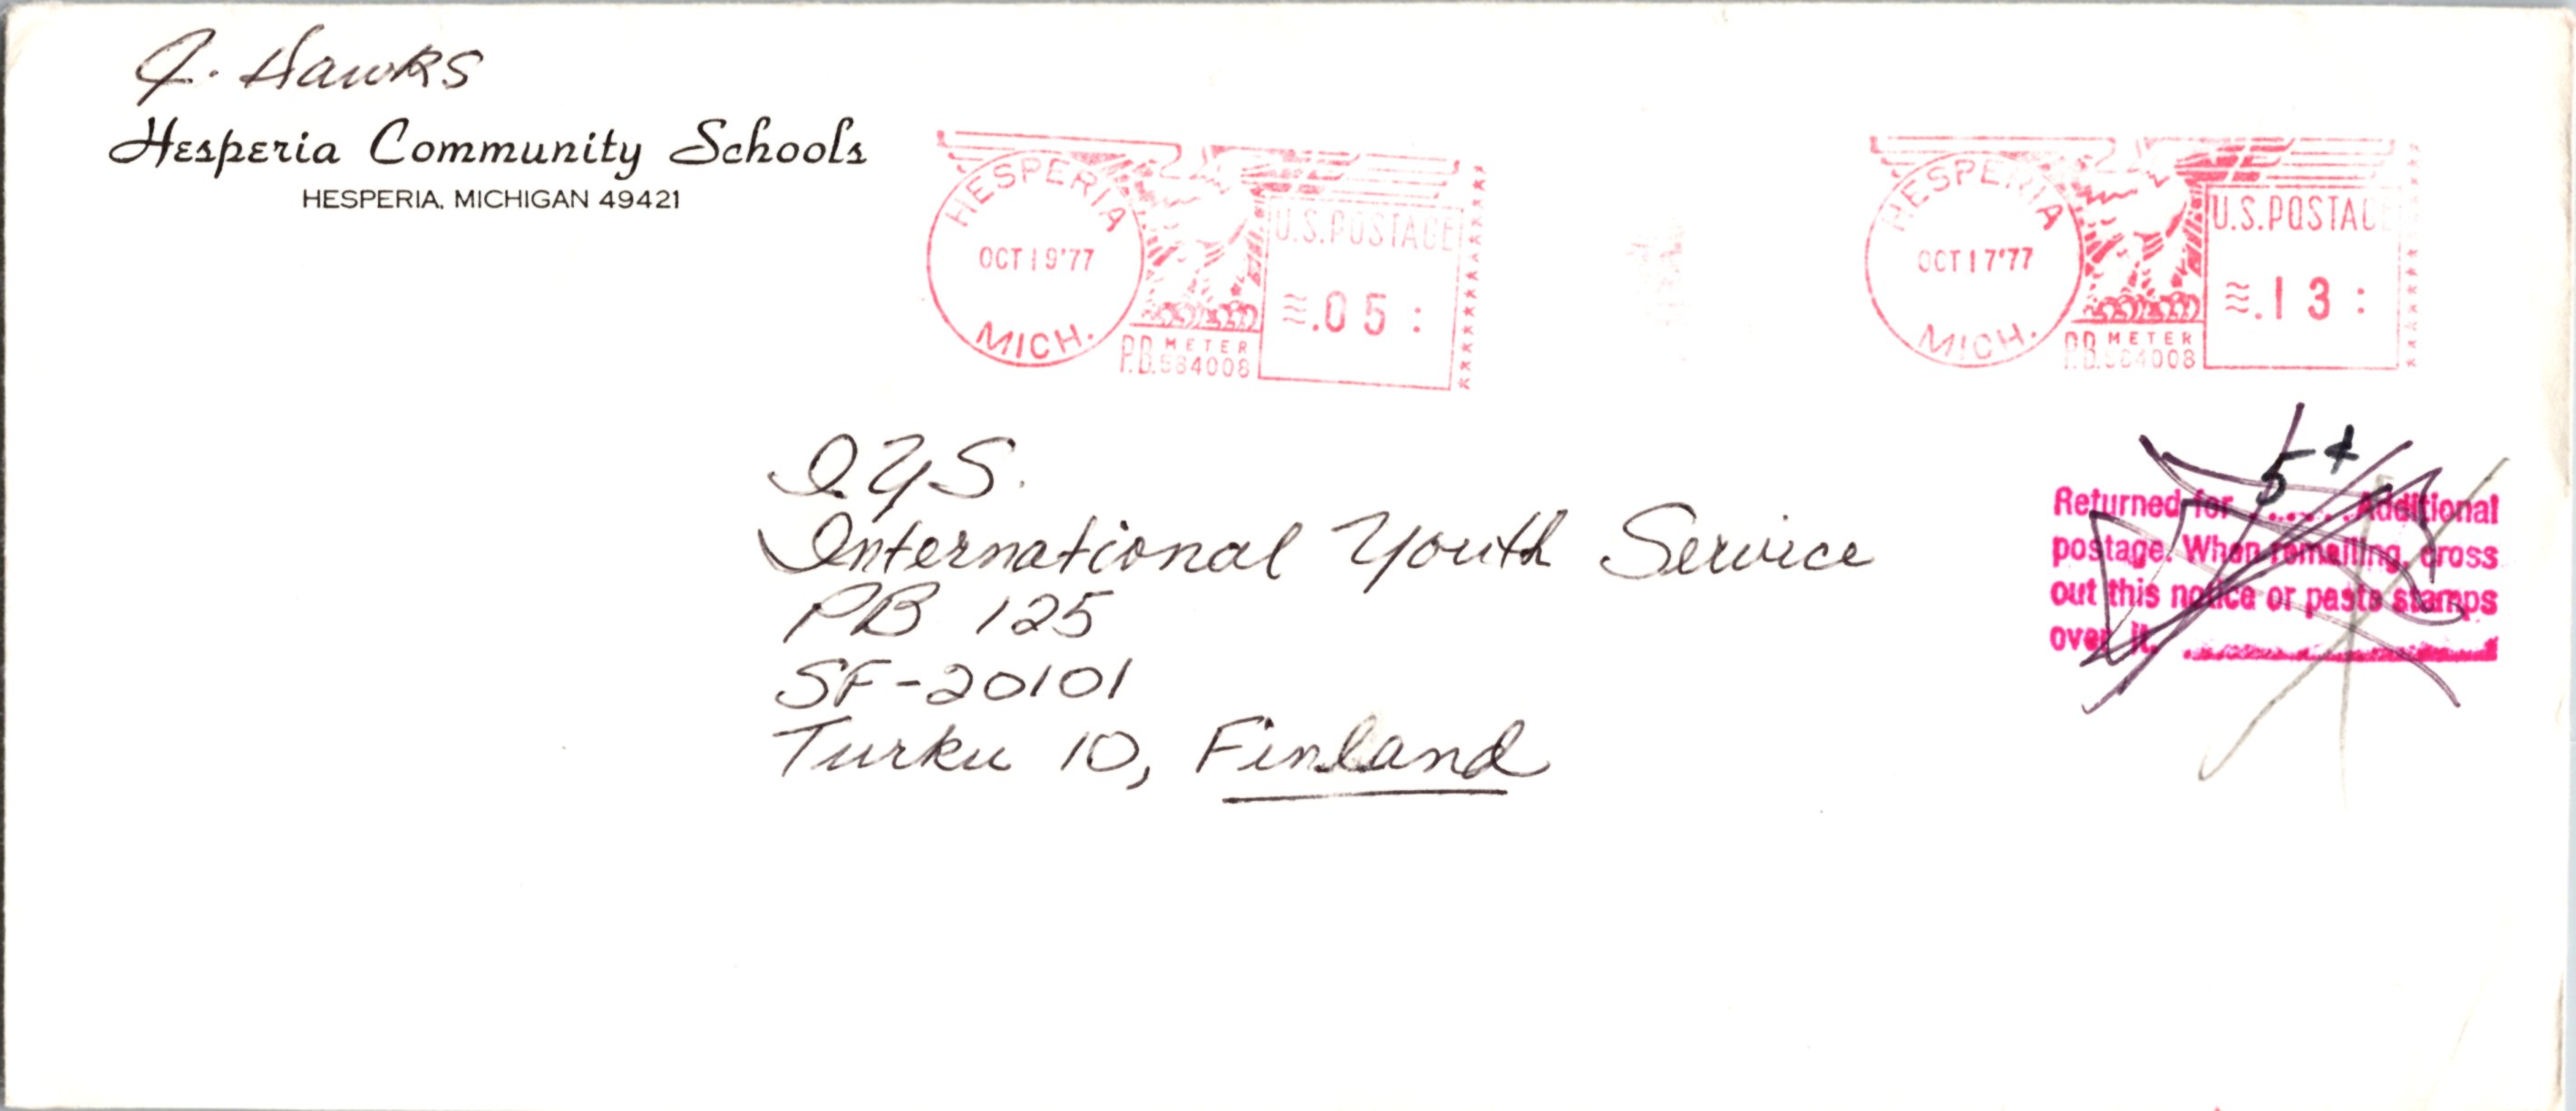 J. Hawks
Hesperia Community Schools
HESPERIA, MICHIGAN 49421
HESPERIA
OCT 19'77
MICH.
U.S. POSTAGE
.05
P.B. METER
HESPERIA
OCT 17'77
MICH.
U.S. POSTAGE
.13
P.B. METER
I.Y.S.
International Youth Service
PB 125
SF-20101
Turku 10, Finland
5¢
Returned for ...... Additional
postage. When remailing, cross
out this notice or paste stamps
over it.